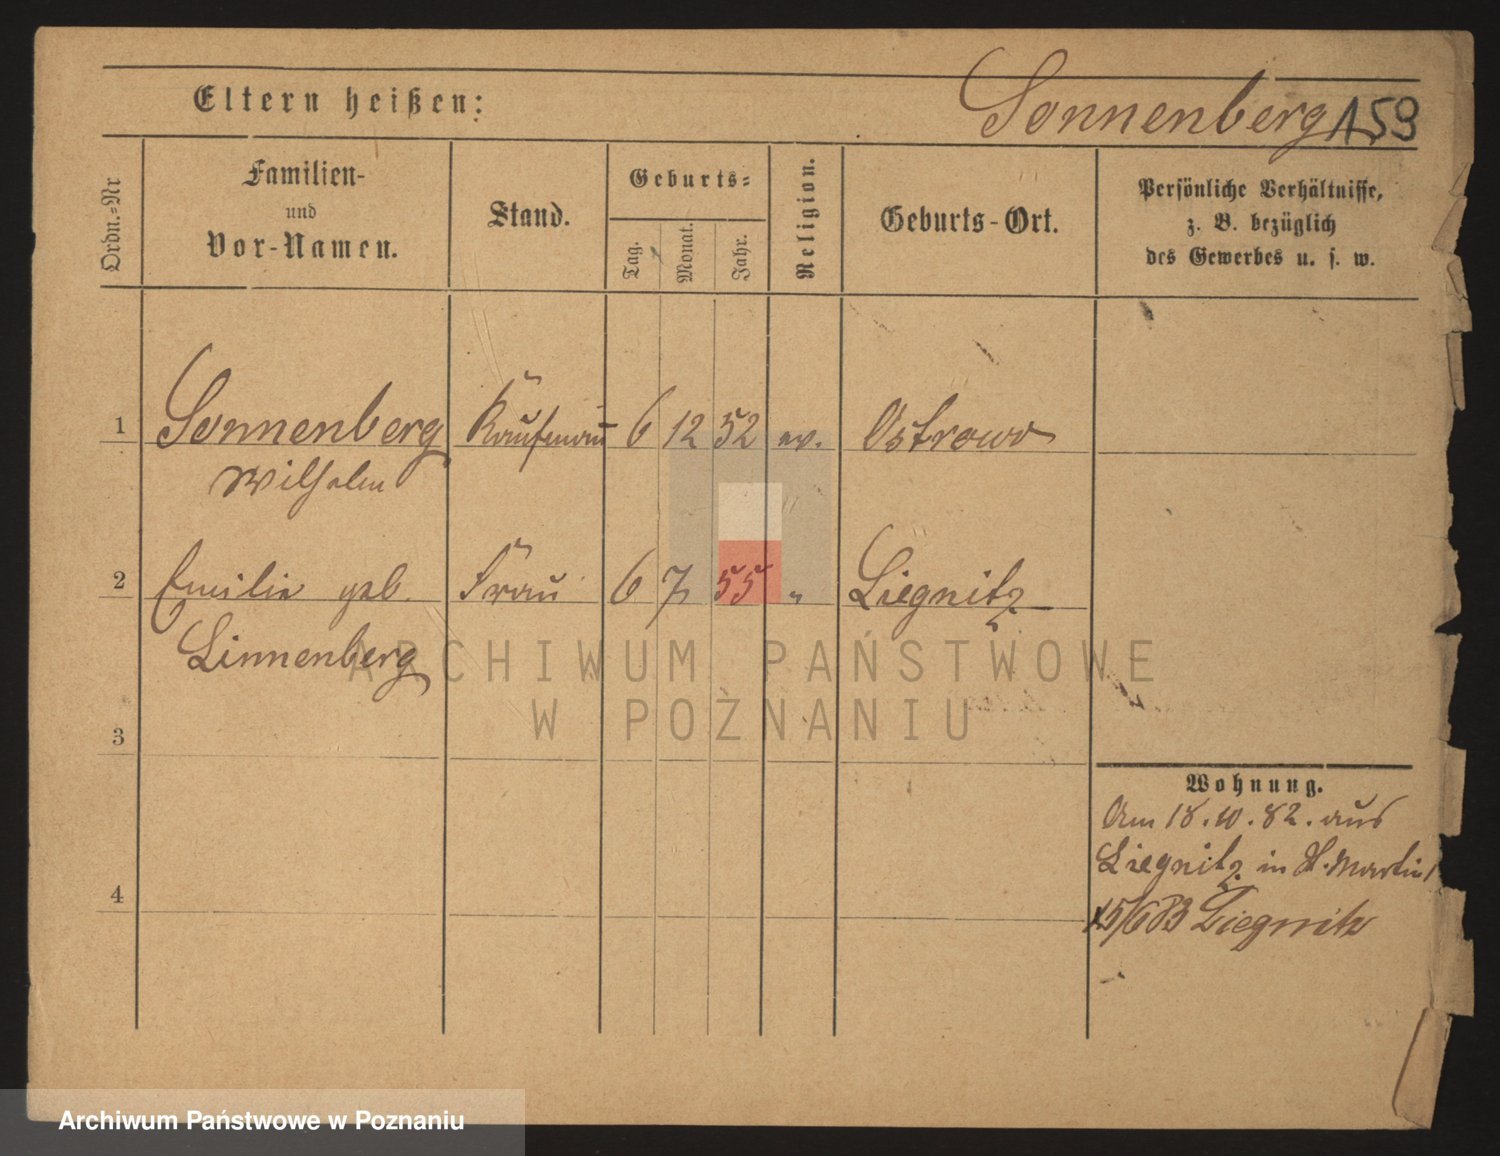 Eltern heißen:
Sonnenberg 159
Ordn.-Nr
Familien-
und
Vor-Namen.
Stand.
Geburts-
Tag.
Monat.
Jahr.
Religion.
Geburts-Ort.
Persönliche Verhältnisse,
z. B. bezüglich
des Gewerbes u. s. w.
1 Sonnenberg Kaufmann 6 12 52 ev. Ostrowo
Wilhelm
2 Emilie geb. Frau 6 7 55 " Liegnitz
Linnenberg
ARCHIWUM PAŃSTWOWE
W POZNANIU
3
Wohnung.
Am 18.10.82. aus
Liegnitz in St. Martin
4
15/6 83 Liegnitz
Archiwum Państwowe w Poznaniu